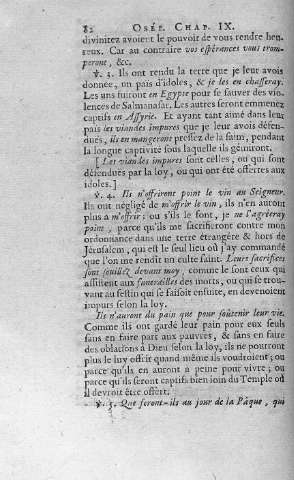 82 OSÉE. CHAP. IX.
divinitez avoient le pouvoir de vous rendre heu-
reux. Car au contraire vos espérances vous trom-
peront, &c.
℣. 3. Ils ont rendu la terre que je leur avois
donnée, un païs d'idoles, & je les en chasseray.
Les uns fuiront en Egypte pour se sauver des vio-
lences de Salmanasar. Les autres seront emmenez
captifs en Assyrie. Et ayant tant aimé dans leur
païs les viandes impures que je leur avois défen-
dues, ils en mangeront pressez de la faim, pendant
la longue captivité sous laquelle ils gémiront.
[Les viandes impures sont celles, ou qui sont
défendues par la loy, ou qui ont été offertes aux
idoles.]
℣. 4. Ils n'offriront point le vin au Seigneur.
Ils ont négligé de m'offrir le vin, ils n'en auront
plus à m'offrir; ou s'ils le font, je ne l'agréeray
point, parce qu'ils me sacrifieront contre mon
ordonnance dans une terre étrangère & hors de
Jérusalem, qui est le seul lieu où j'ay commandé
que l'on me rendît un culte saint. Leurs sacrifices
sont souillez devant moy, comme le sont ceux qui
assistent aux funerailles des morts, ou qui se trou-
vant au festin qui se faisoit ensuite, en devenoient
impurs selon la loy.
Ils n'auront du pain que pour soûtenir leur vie.
Comme ils ont gardé leur pain pour eux seuls
sans en faire part aux pauvres, & sans en faire
des oblations à Dieu selon la loy, ils ne pourront
plus le luy offrir quand même ils voudroient; ou
parce qu'ils en auront à peine pour vivre; ou
parce qu'ils seront captifs bien loin du Temple où
il devroit être offert.
℣. 5. Que feront-ils au jour de la Pâque, qui